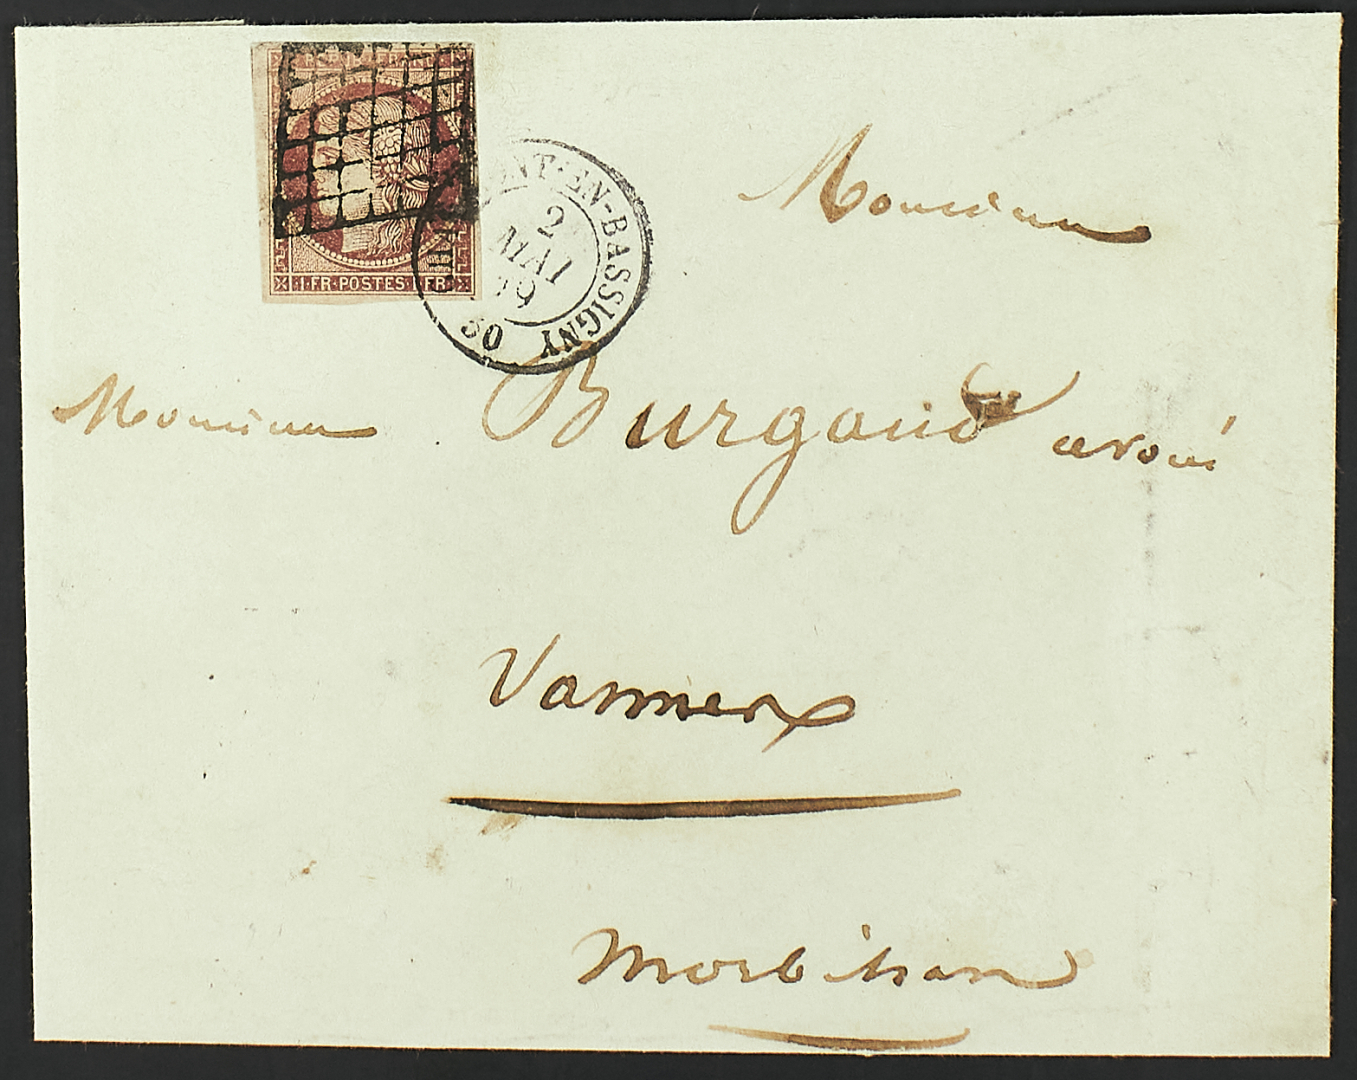 REPUB FRANC
1·FR·POSTES·1·FR
CHAUMONT-EN-BASSIGNY
2
MAI
49
50
Monsieur
Monsieur Burgaud avoué
Vannes
Morbihan